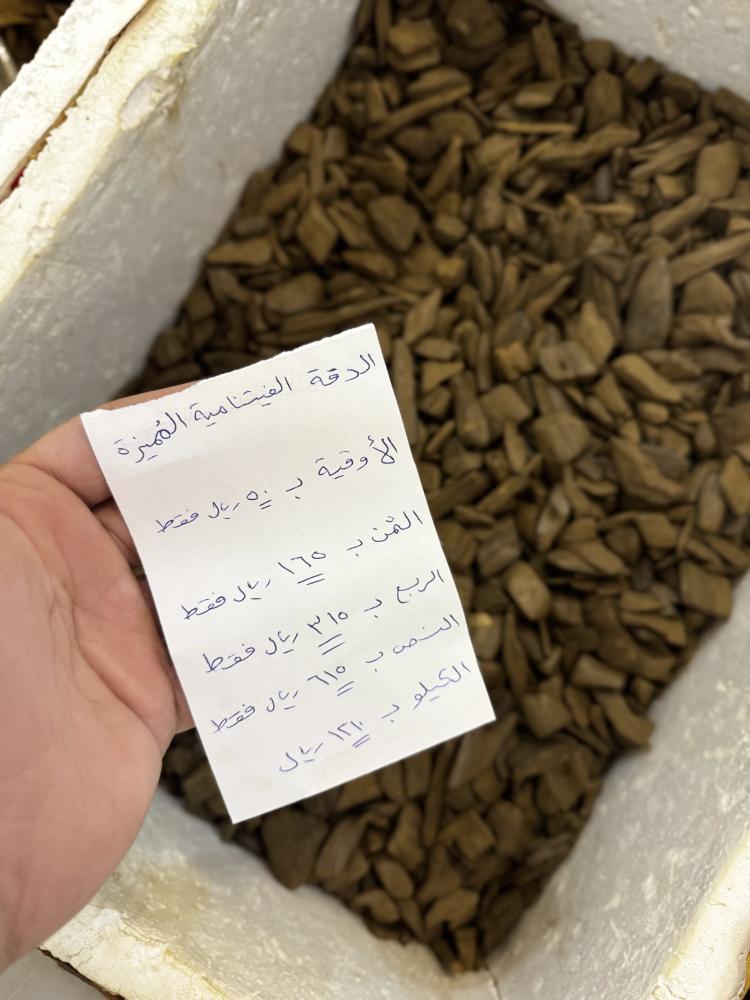 الدقة الفيتنامية المُميزة
الأوقية ب ٥٠ ريال فقط
الثمن ب ١٦٥ ريال فقط
الربع ب ٣١٥ ريال فقط
النص ب ٦١٥ ريال فقط
الكيلو ب ١٢١٠ ريال